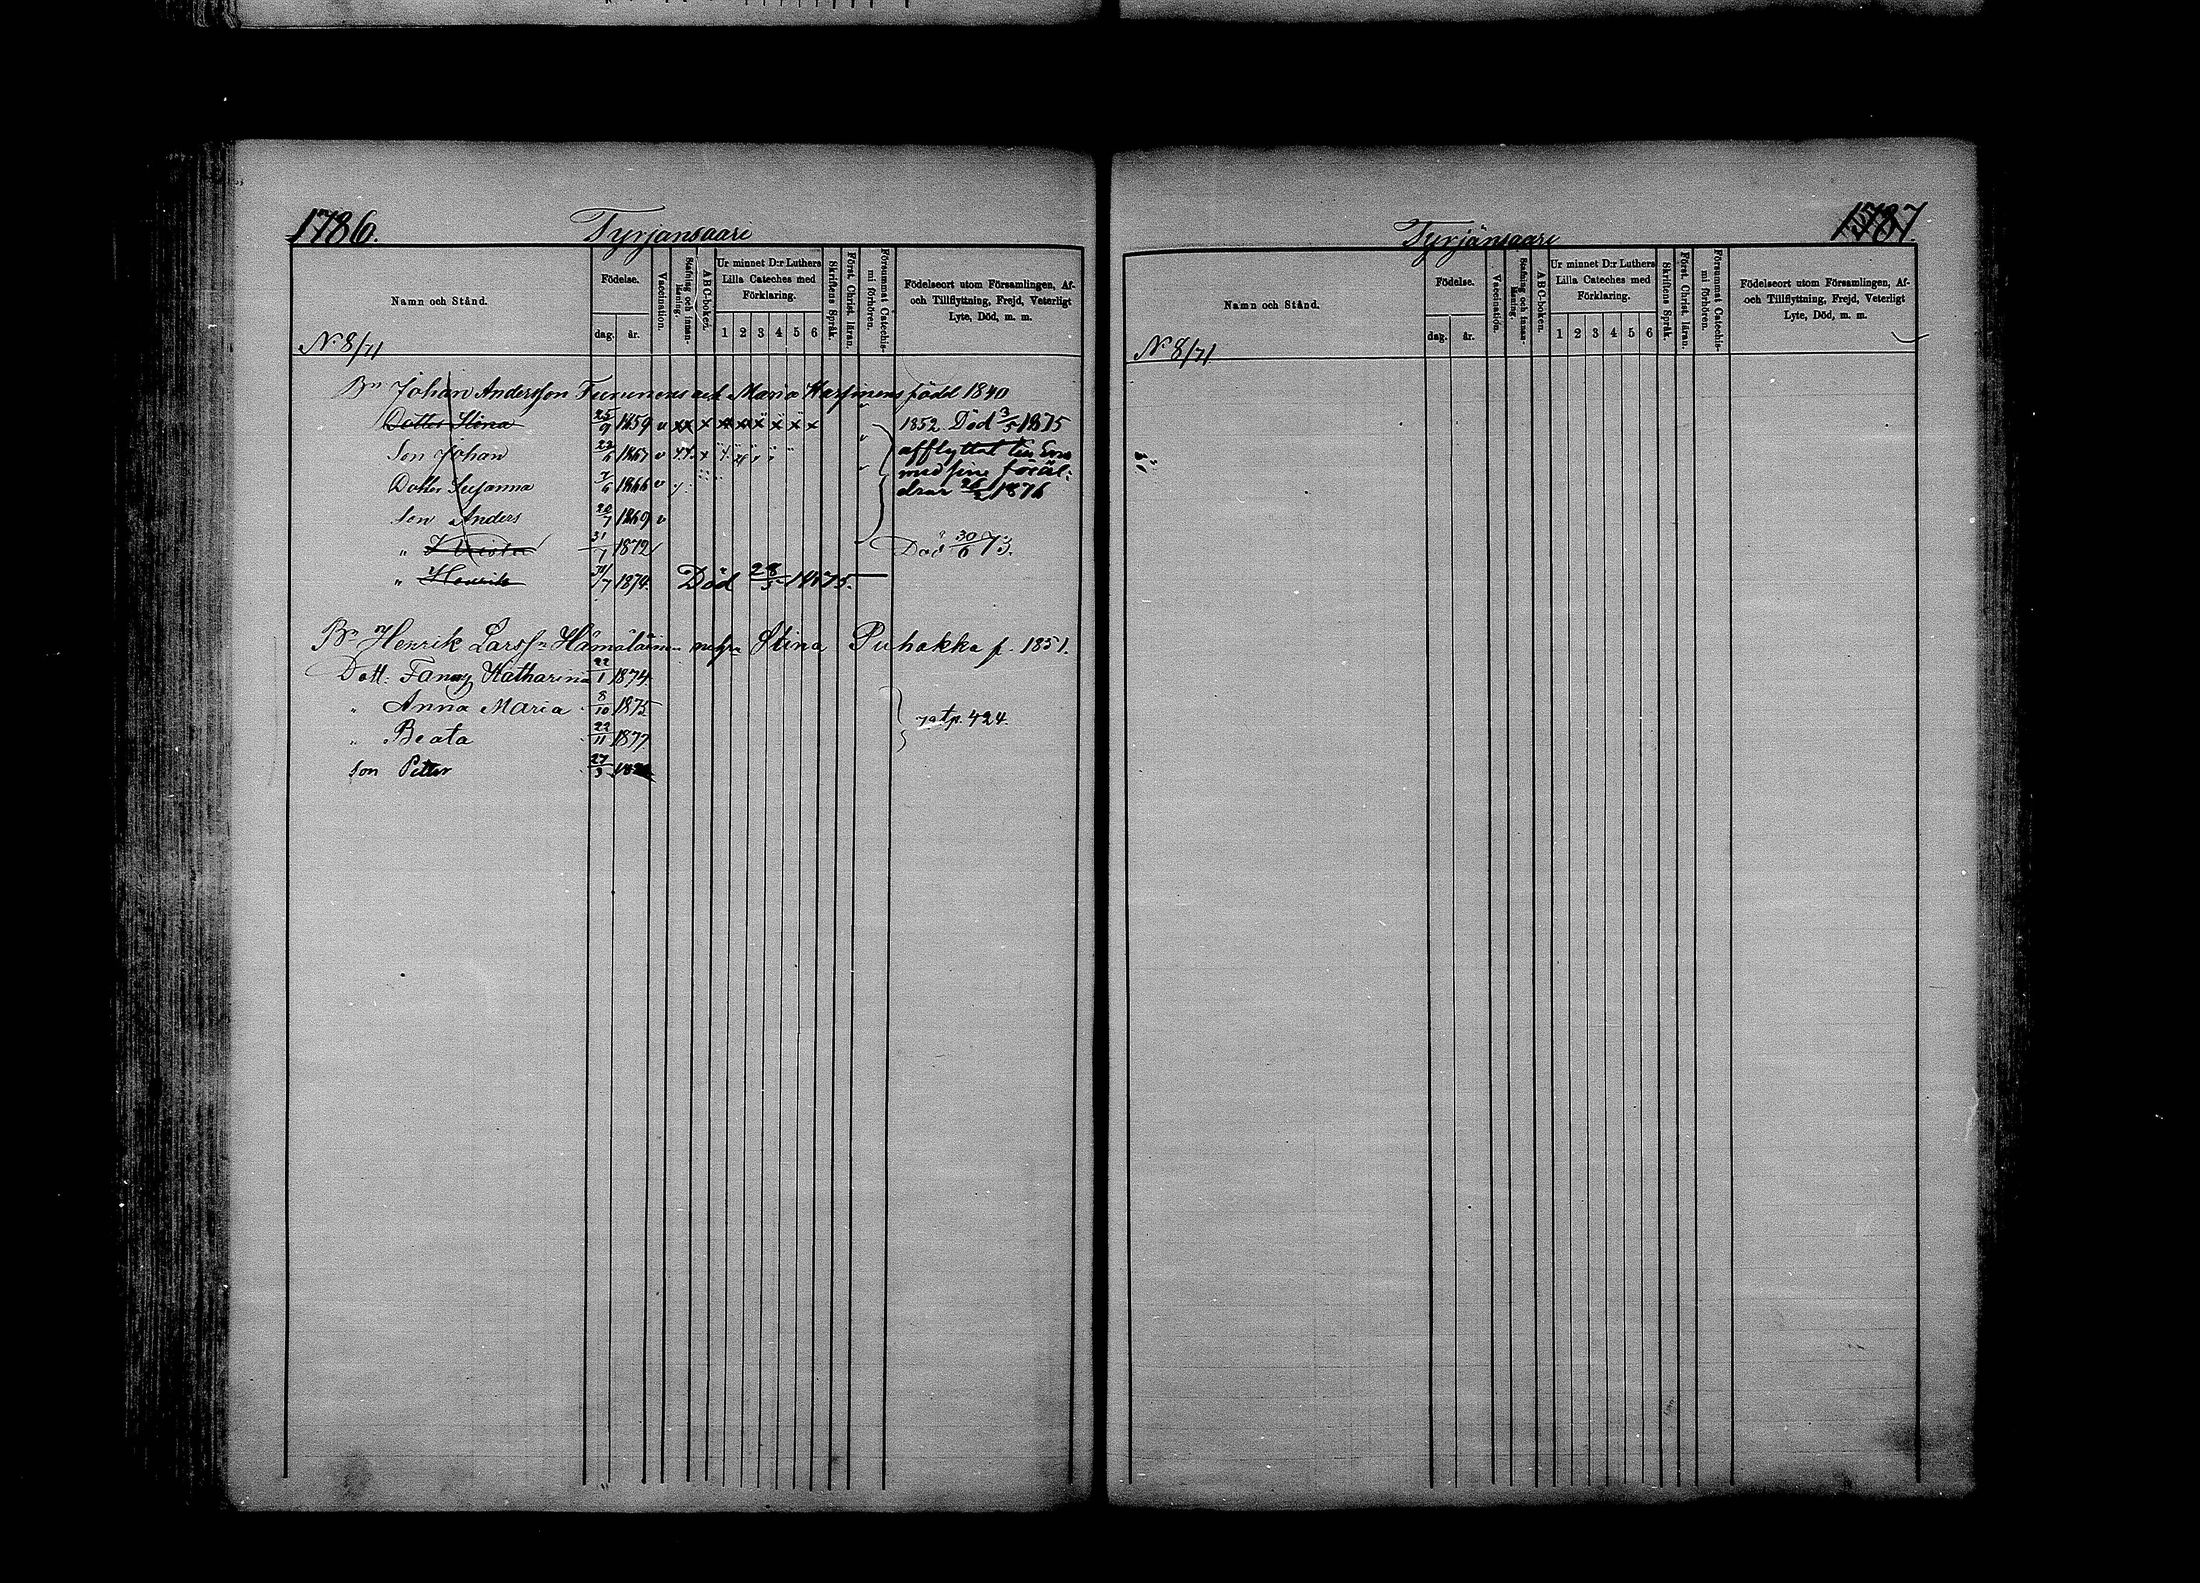 1786.
Tyrjänsaari
Namn och Stånd.
Födelse.
dag.
år.
Vaccination.
Stafning och innan-läsning.
ABC-boken.
Ur minnet D:r Luthers Lilla Cateches med Förklaring.
1 2 3 4 5 6
Skriftens Språk.
Först. Christ. läran.
Försummat Catechis-mi förhören.
Födelseort utom Församlingen, Af-
och Tillflyttning, Frejd, Veterligt
Lyte, Död, m. m.
N 8/71
Bn Johan Andersson Turunens och Maria Karhinens född 1840
Dotter Stina 25/9 1859 v 1852 Död 3/5 1875
Son Johan 1867 v afflyttat till Eno
Dotter Susanna 7/6 1866 v med sina föräl-
drar 26/2 1876
Son Anders 20/7 1869 v
" 31/1 1872 Död 30/6 73.
" Henrik 1874. Död 28/5 1875.
Bn Henrik Larss:n Hämäläinen Stina Puhakka f. 1851.
Dott. Fanny Katharina 22/1 1874
" Anna Maria 8/10 1875
p. 424.
" Beata 22/11 1877
Son Petter 27/3
1787.
Tyrjänsaari
Namn och Stånd.
Födelse.
dag.
år.
Vaccination.
Stafning och innan-läsning.
ABC-boken.
Ur minnet D:r Luthers Lilla Cateches med Förklaring.
1 2 3 4 5 6
Skriftens Språk.
Först. Christ. läran.
Försummat Catechis-mi förhören.
Födelseort utom Församlingen, Af-
och Tillflyttning, Frejd, Veterligt
Lyte, Död, m. m.
N 8/71